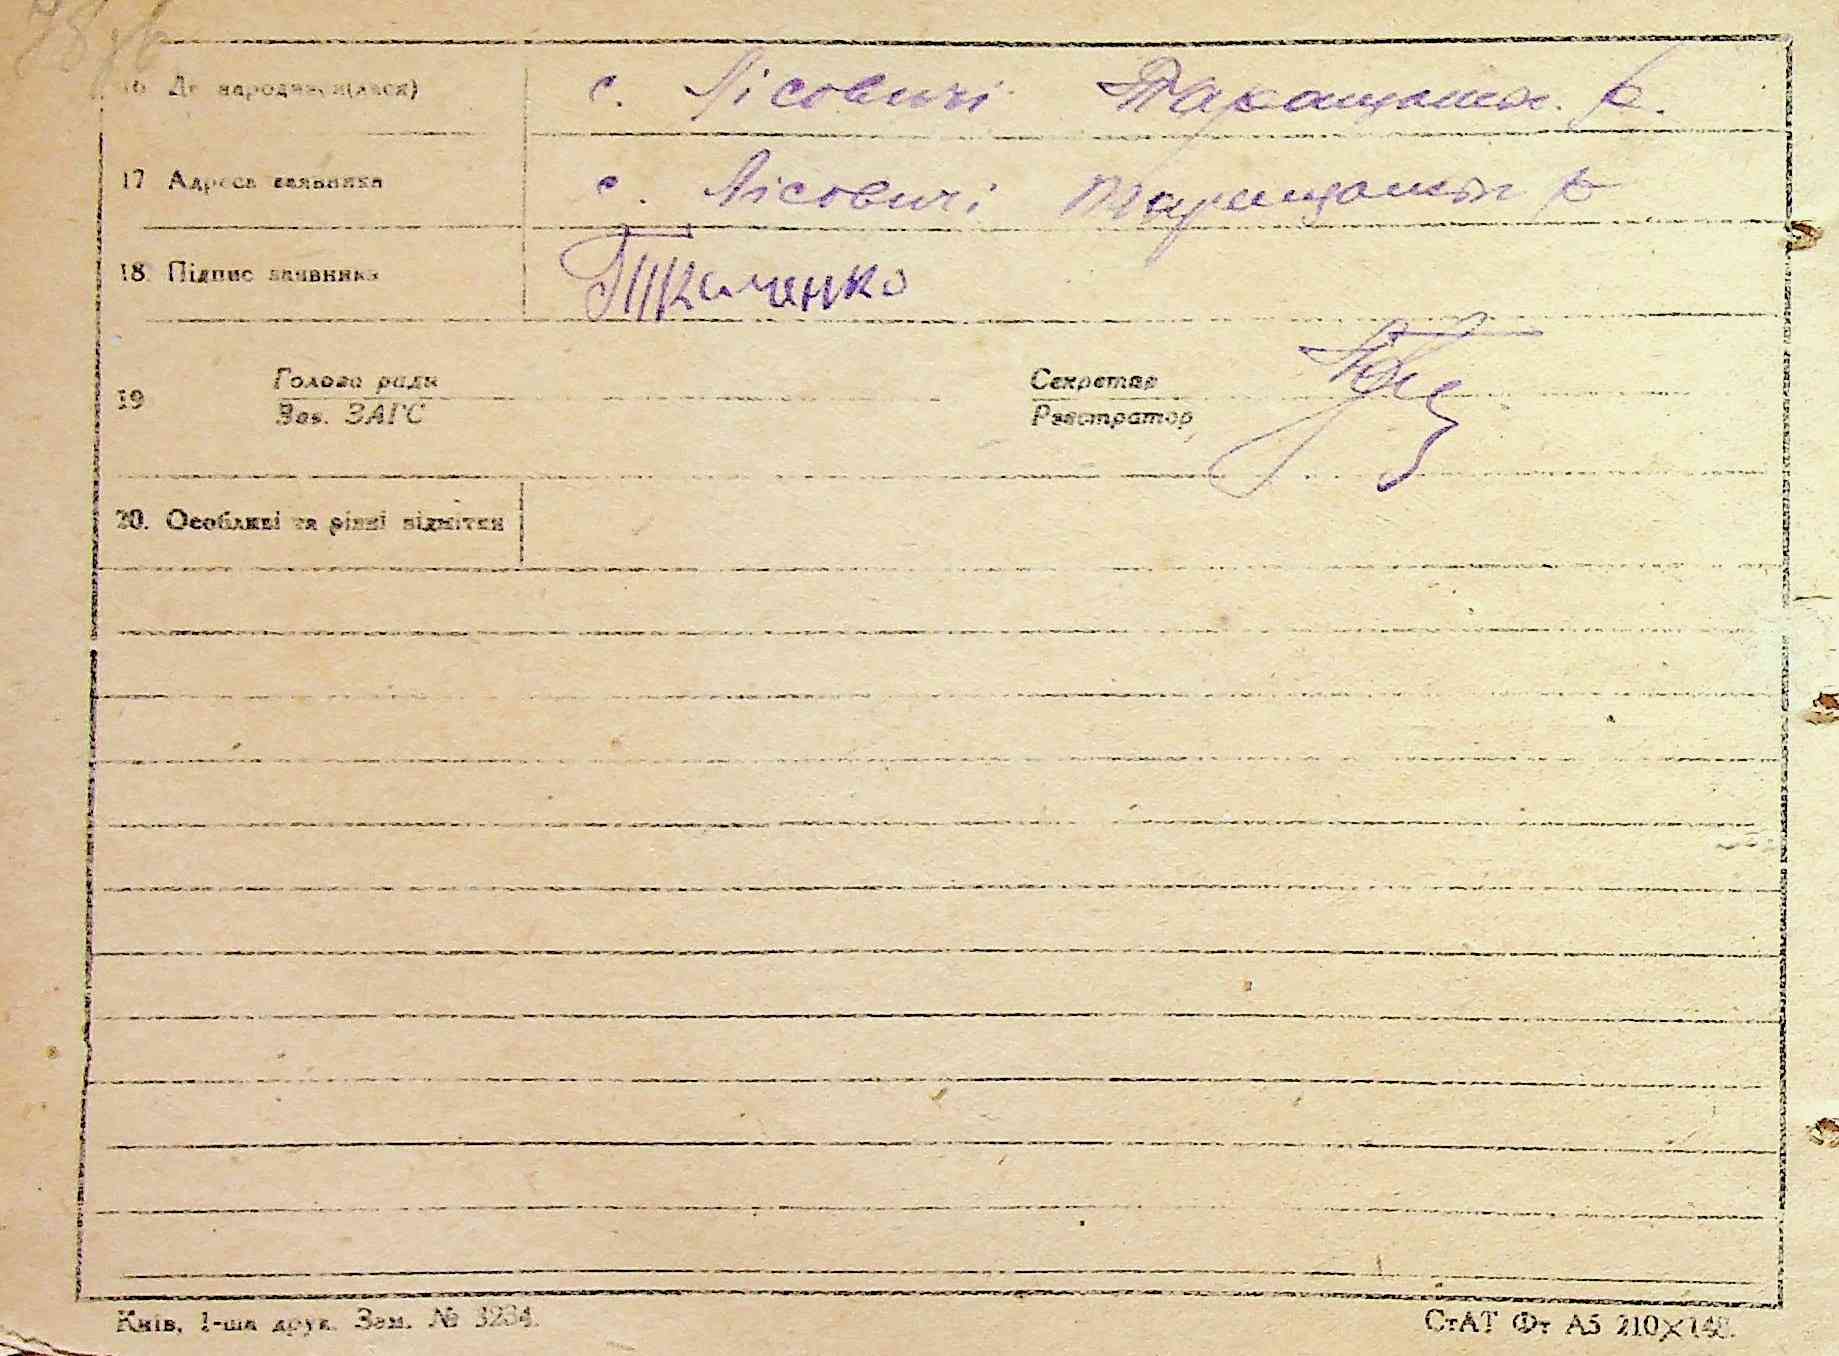 16 Де народився(лася) с. Лісовичі Таращанськ. р.
17 Адреса заявника с. Лісовичі Таращанськ р
18. Підпис заявника Ткаченко
Голова ради Секретар
19
Зав. ЗАГС Реєстратор
20. Особливі та різні відмітки
Київ, 1-ша друк. Зам. № 3234. СтАТ Фт А5 210×148.